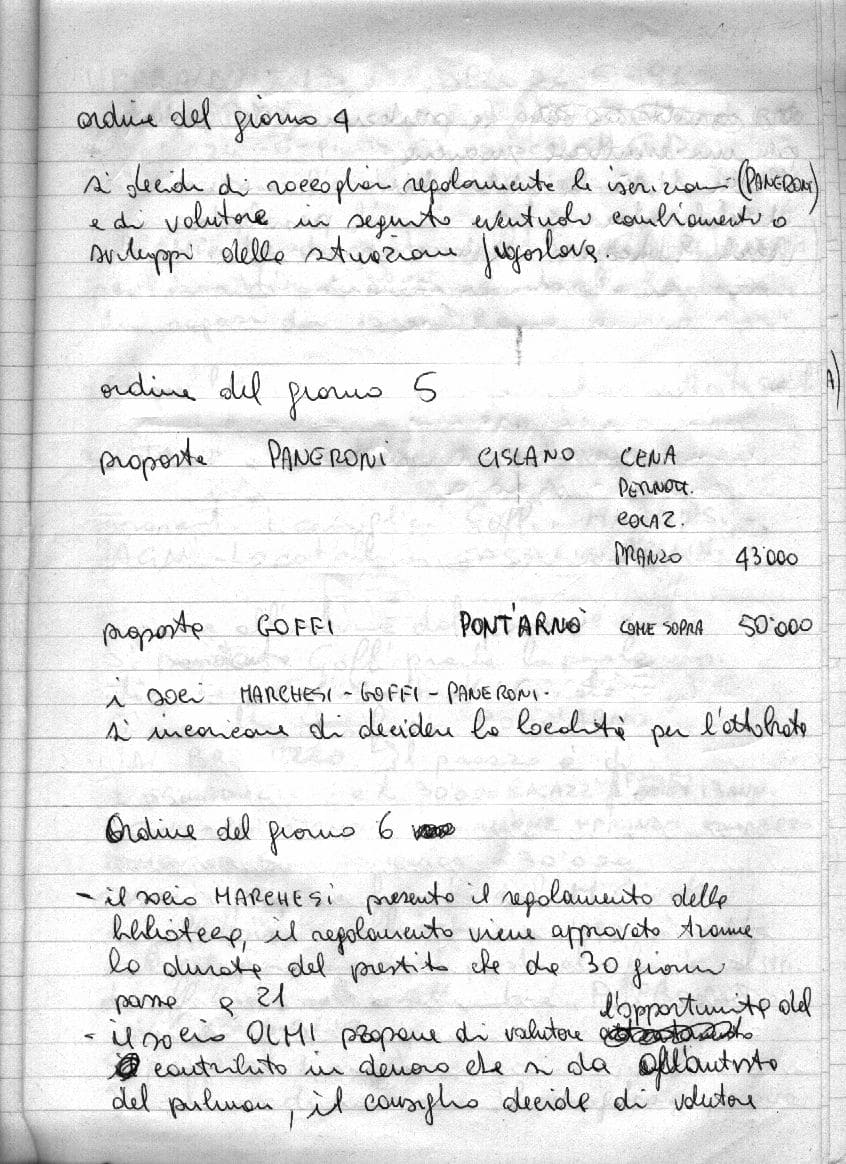 ordine del giorno 4
si decide di raccoglier regolarmente le iscrizioni (PANERONI)
e di valutare in seguito eventuali cambiamenti o
sviluppi della situazione Jugoslava.
A)
ordine del giorno 5
proposta PANERONI CISLANO CENA
PERNOTT.
COLAZ.
PRANZO 43'000
proposta GOFFI PONT'ARNÒ COME SOPRA 50'000
i soci MARCHESI - GOFFI - PANERONI.
si incaricano di decidere la località per l'ottobrata
Ordine del giorno 6
- il socio MARCHESI presenta il regolamento della
biblioteca, il regolamento viene approvato tranne
la durata del prestito che da 30 giorni
passa a 21
- il socio OLMI propone di valutare l'opportunità del
contributo in denaro che si da all'autista
del pulman, il consiglio decide di valutare